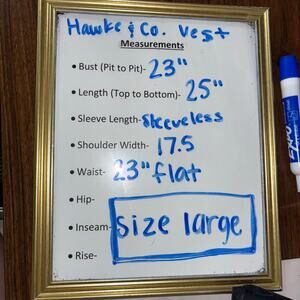 Hawke & Co. Vest
Measurements
• Bust (Pit to Pit)- 23"
• Length (Top to Bottom)- 25"
• Sleeve Length- Sleeveless
• Shoulder Width- 17.5
• Waist- 23" flat
• Hip-
• Inseam-
• Rise-
size large
EXPO